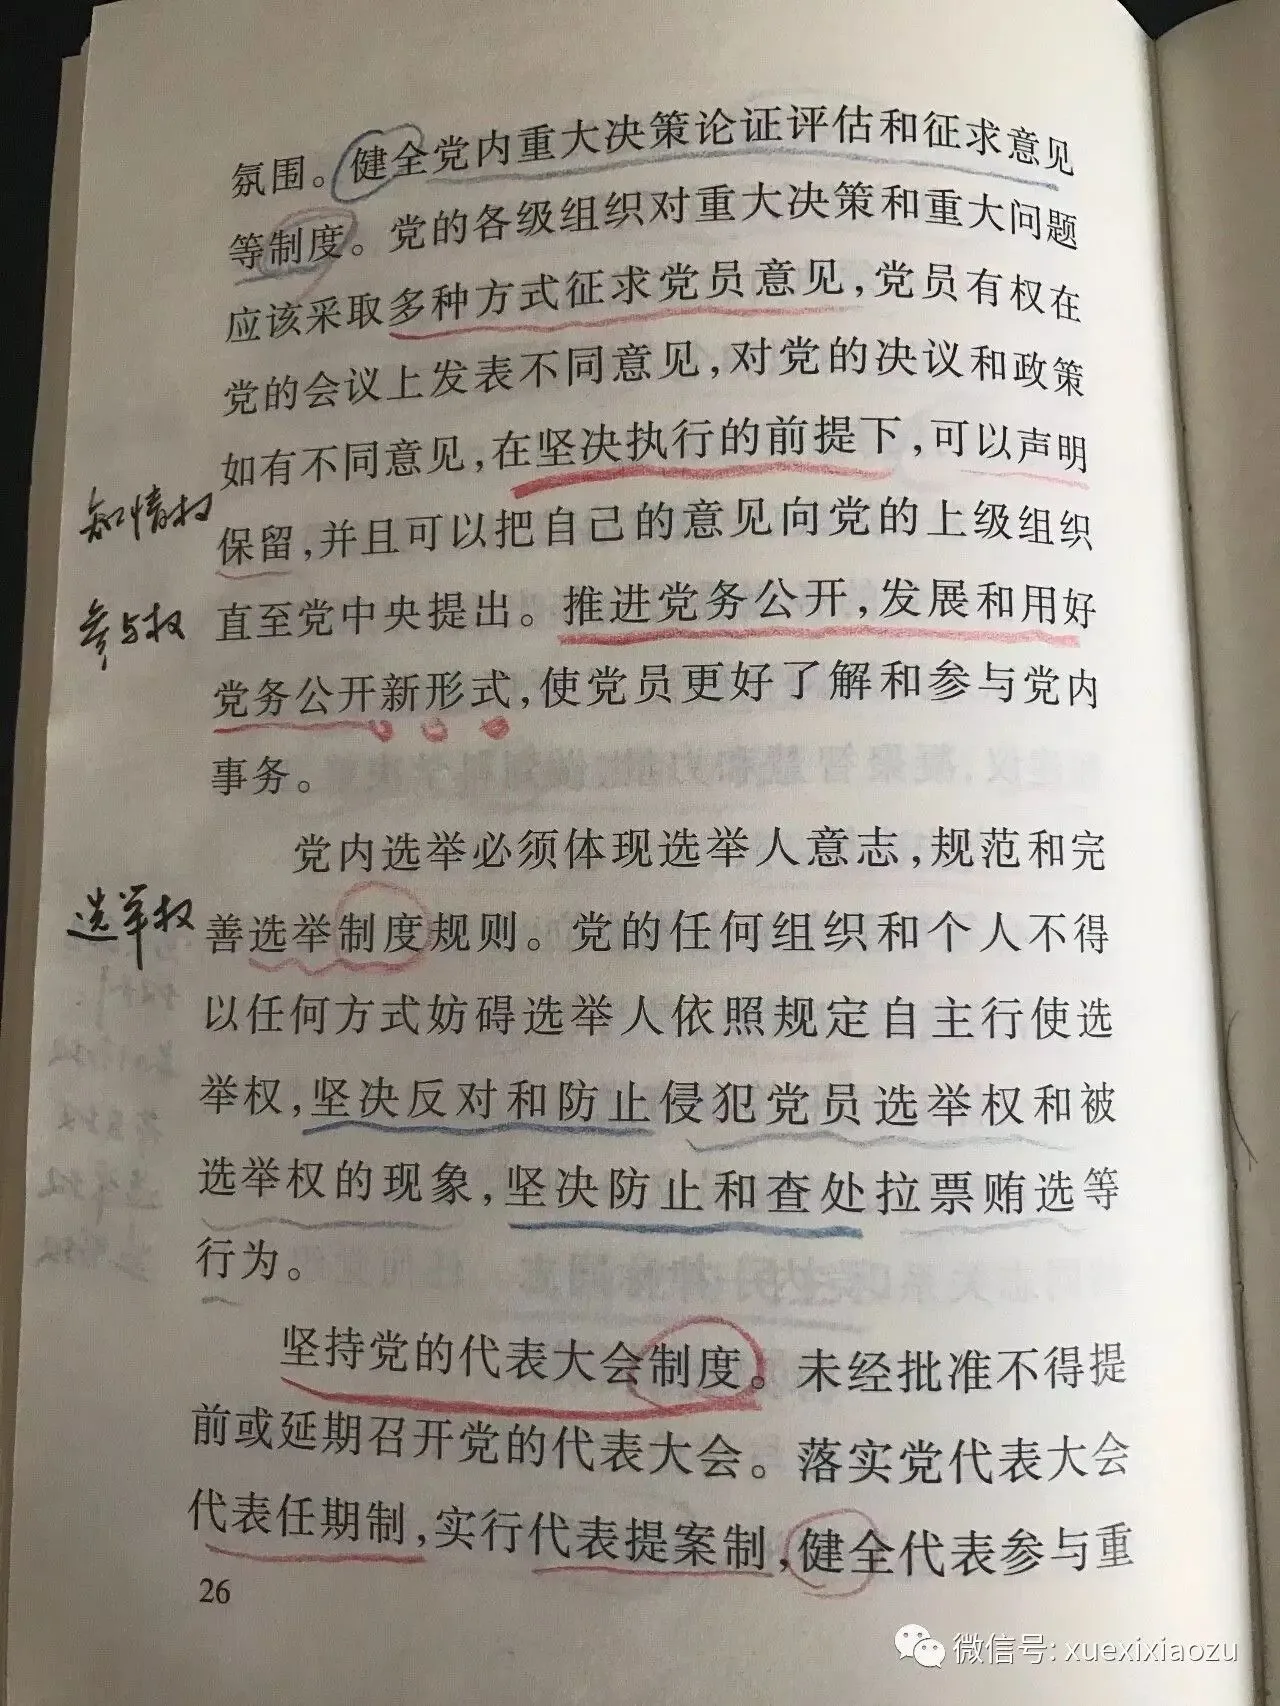 氛围。健全党内重大决策论证评估和征求意见
等制度。党的各级组织对重大决策和重大问题
应该采取多种方式征求党员意见,党员有权在
党的会议上发表不同意见,对党的决议和政策
如有不同意见,在坚决执行的前提下,可以声明
知情权
保留,并且可以把自己的意见向党的上级组织
参与权
直至党中央提出。推进党务公开,发展和用好
党务公开新形式,使党员更好了解和参与党内
事务。
党内选举必须体现选举人意志,规范和完
选举权
善选举制度规则。党的任何组织和个人不得
以任何方式妨碍选举人依照规定自主行使选
举权,坚决反对和防止侵犯党员选举权和被
选举权的现象,坚决防止和查处拉票贿选等
行为。
坚持党的代表大会制度。未经批准不得提
前或延期召开党的代表大会。落实党代表大会
代表任期制,实行代表提案制,健全代表参与重
26
微信号: xuexixiaozu